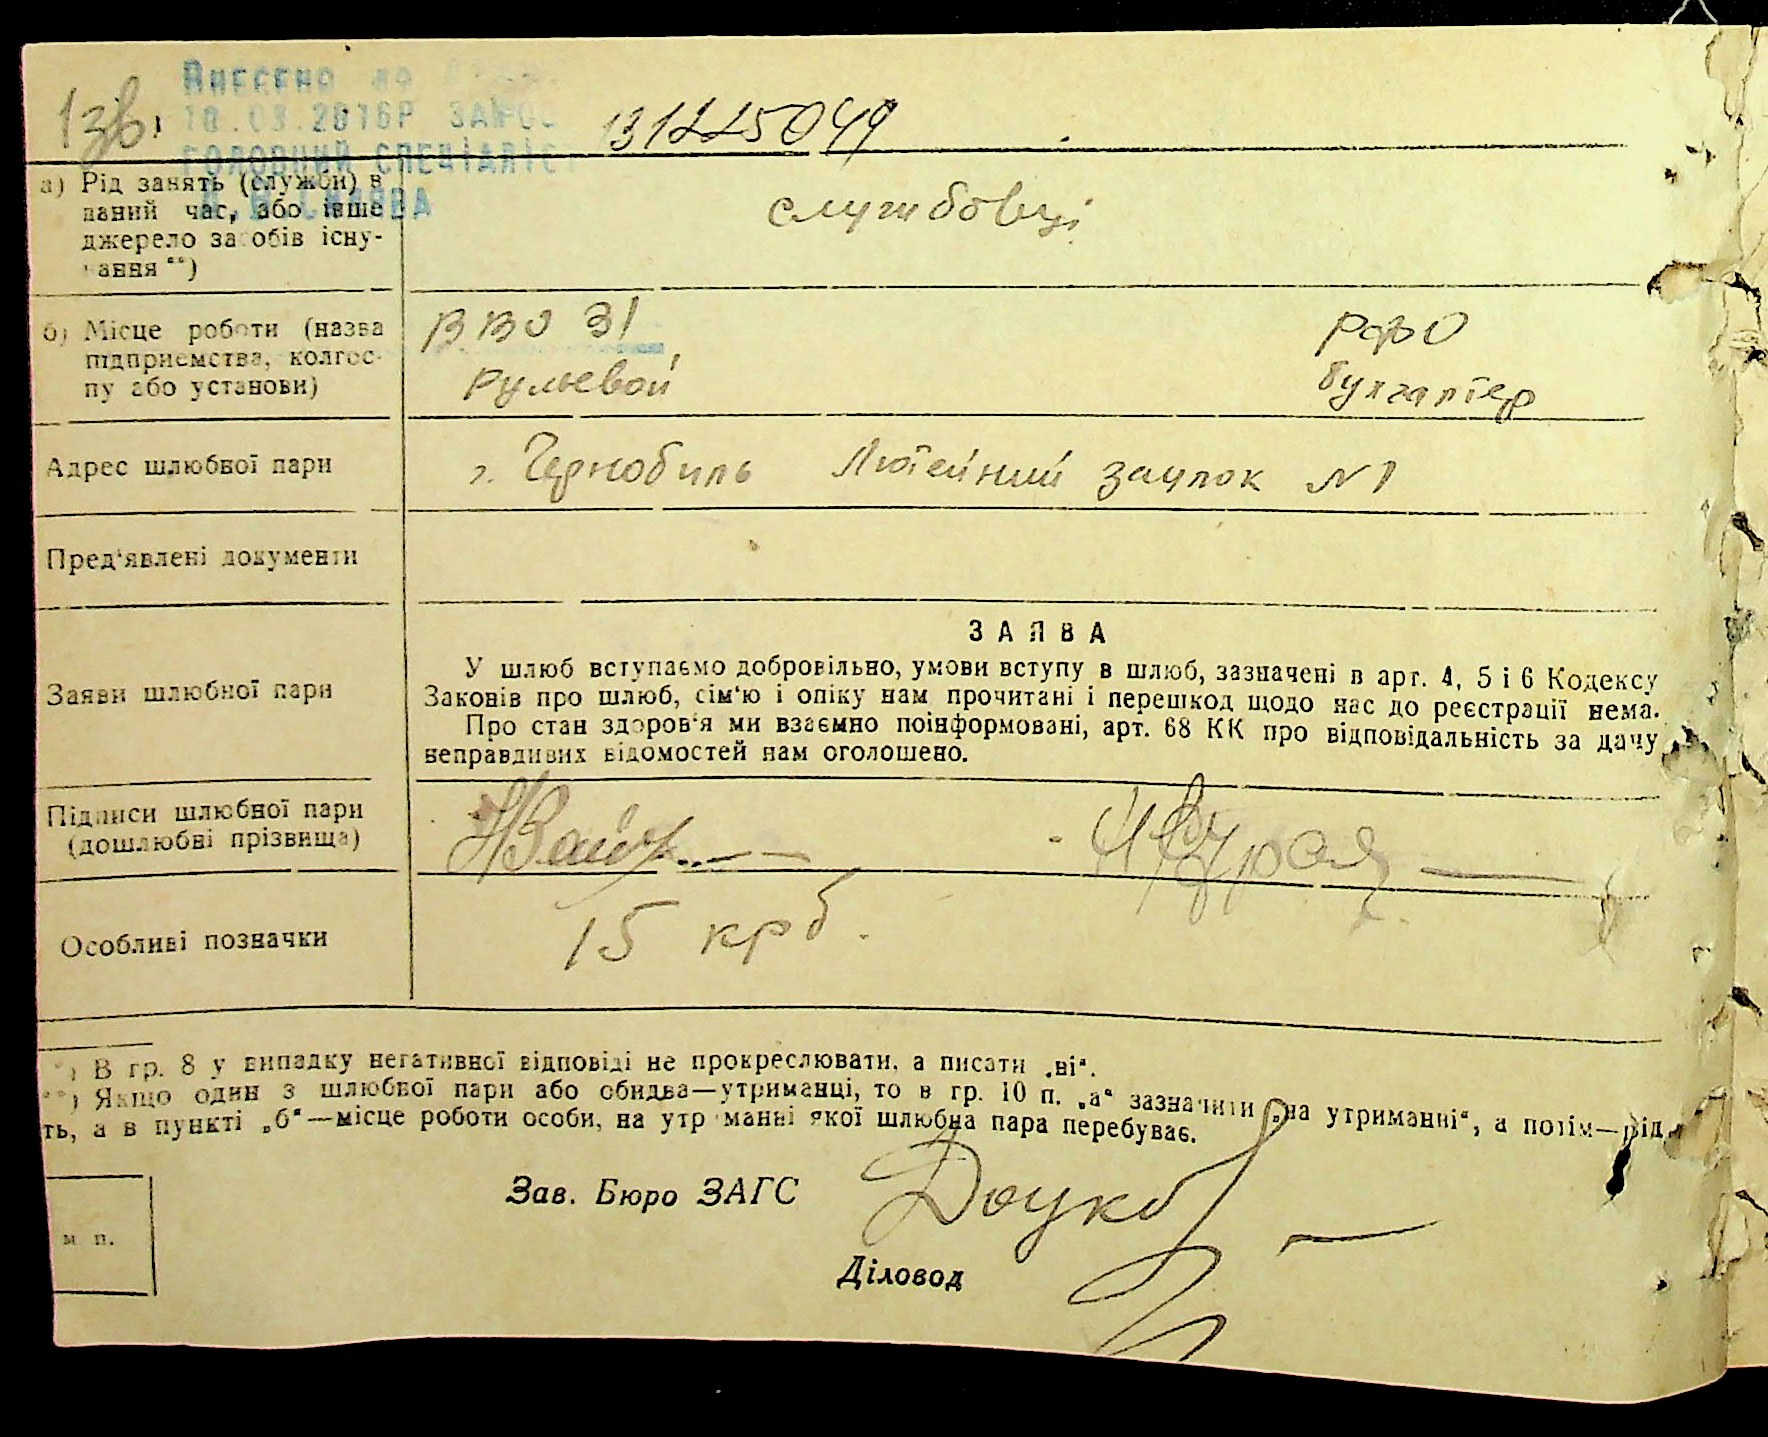 Внесено до
18.03.2016Р
ГОЛОВНИЙ СПЕЦІАЛІСТ
1зв.
131225049
а) Рід занять (служби) в
даний час, або інше
джерело засобів існу-
вання **)
службовці
б) Місце роботи (назва
підприємства, колгос-
пу або установи)
ВВО 31
рульовой
РФВ
бухгалтер
Адрес шлюбної пари
г. Чернобиль Лютейний заулок №1
Пред'явлені документи
Заяви шлюбної пари
ЗАЯВА
У шлюб вступаємо добровільно, умови вступу в шлюб, зазначені в арт. 4, 5 і 6 Кодексу
Законів про шлюб, сім'ю і опіку нам прочитані і перешкод щодо нас до реєстрації нема.
Про стан здоров'я ми взаємно поінформовані, арт. 68 КК про відповідальність за дачу
неправдивих відомостей нам оголошено.
Підписи шлюбної пари
(дошлюбні прізвища)
Особливі позначки
15 крб.
*) В гр. 8 у випадку негативної відповіді не прокреслювати, а писати „ні“.
**) Якщо один з шлюбної пари або обидва—утриманці, то в гр. 10 п. „а“ зазначити „на утриманні“, а потім—рід
ть, а в пункті „б“—місце роботи особи, на утриманні якої шлюбна пара перебуває.
Зав. Бюро ЗАГС
Діловод
м п.